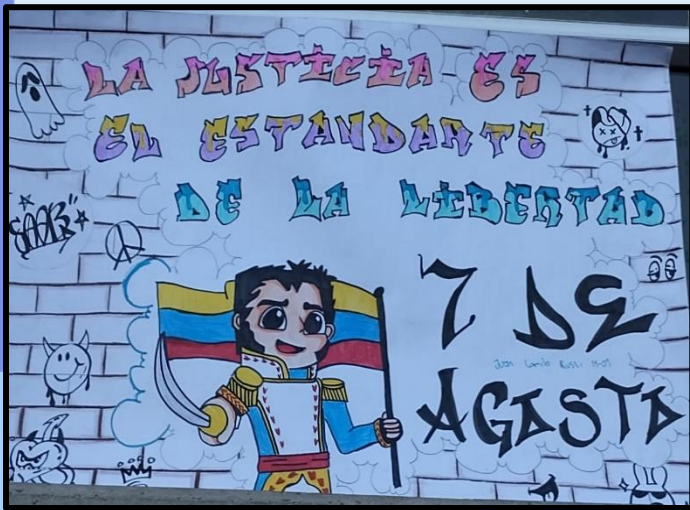 LA JUSTICIA ES
EL ESTANDARTE
DE LA LIBERTAD
7 DE
Juan
AGOSTO